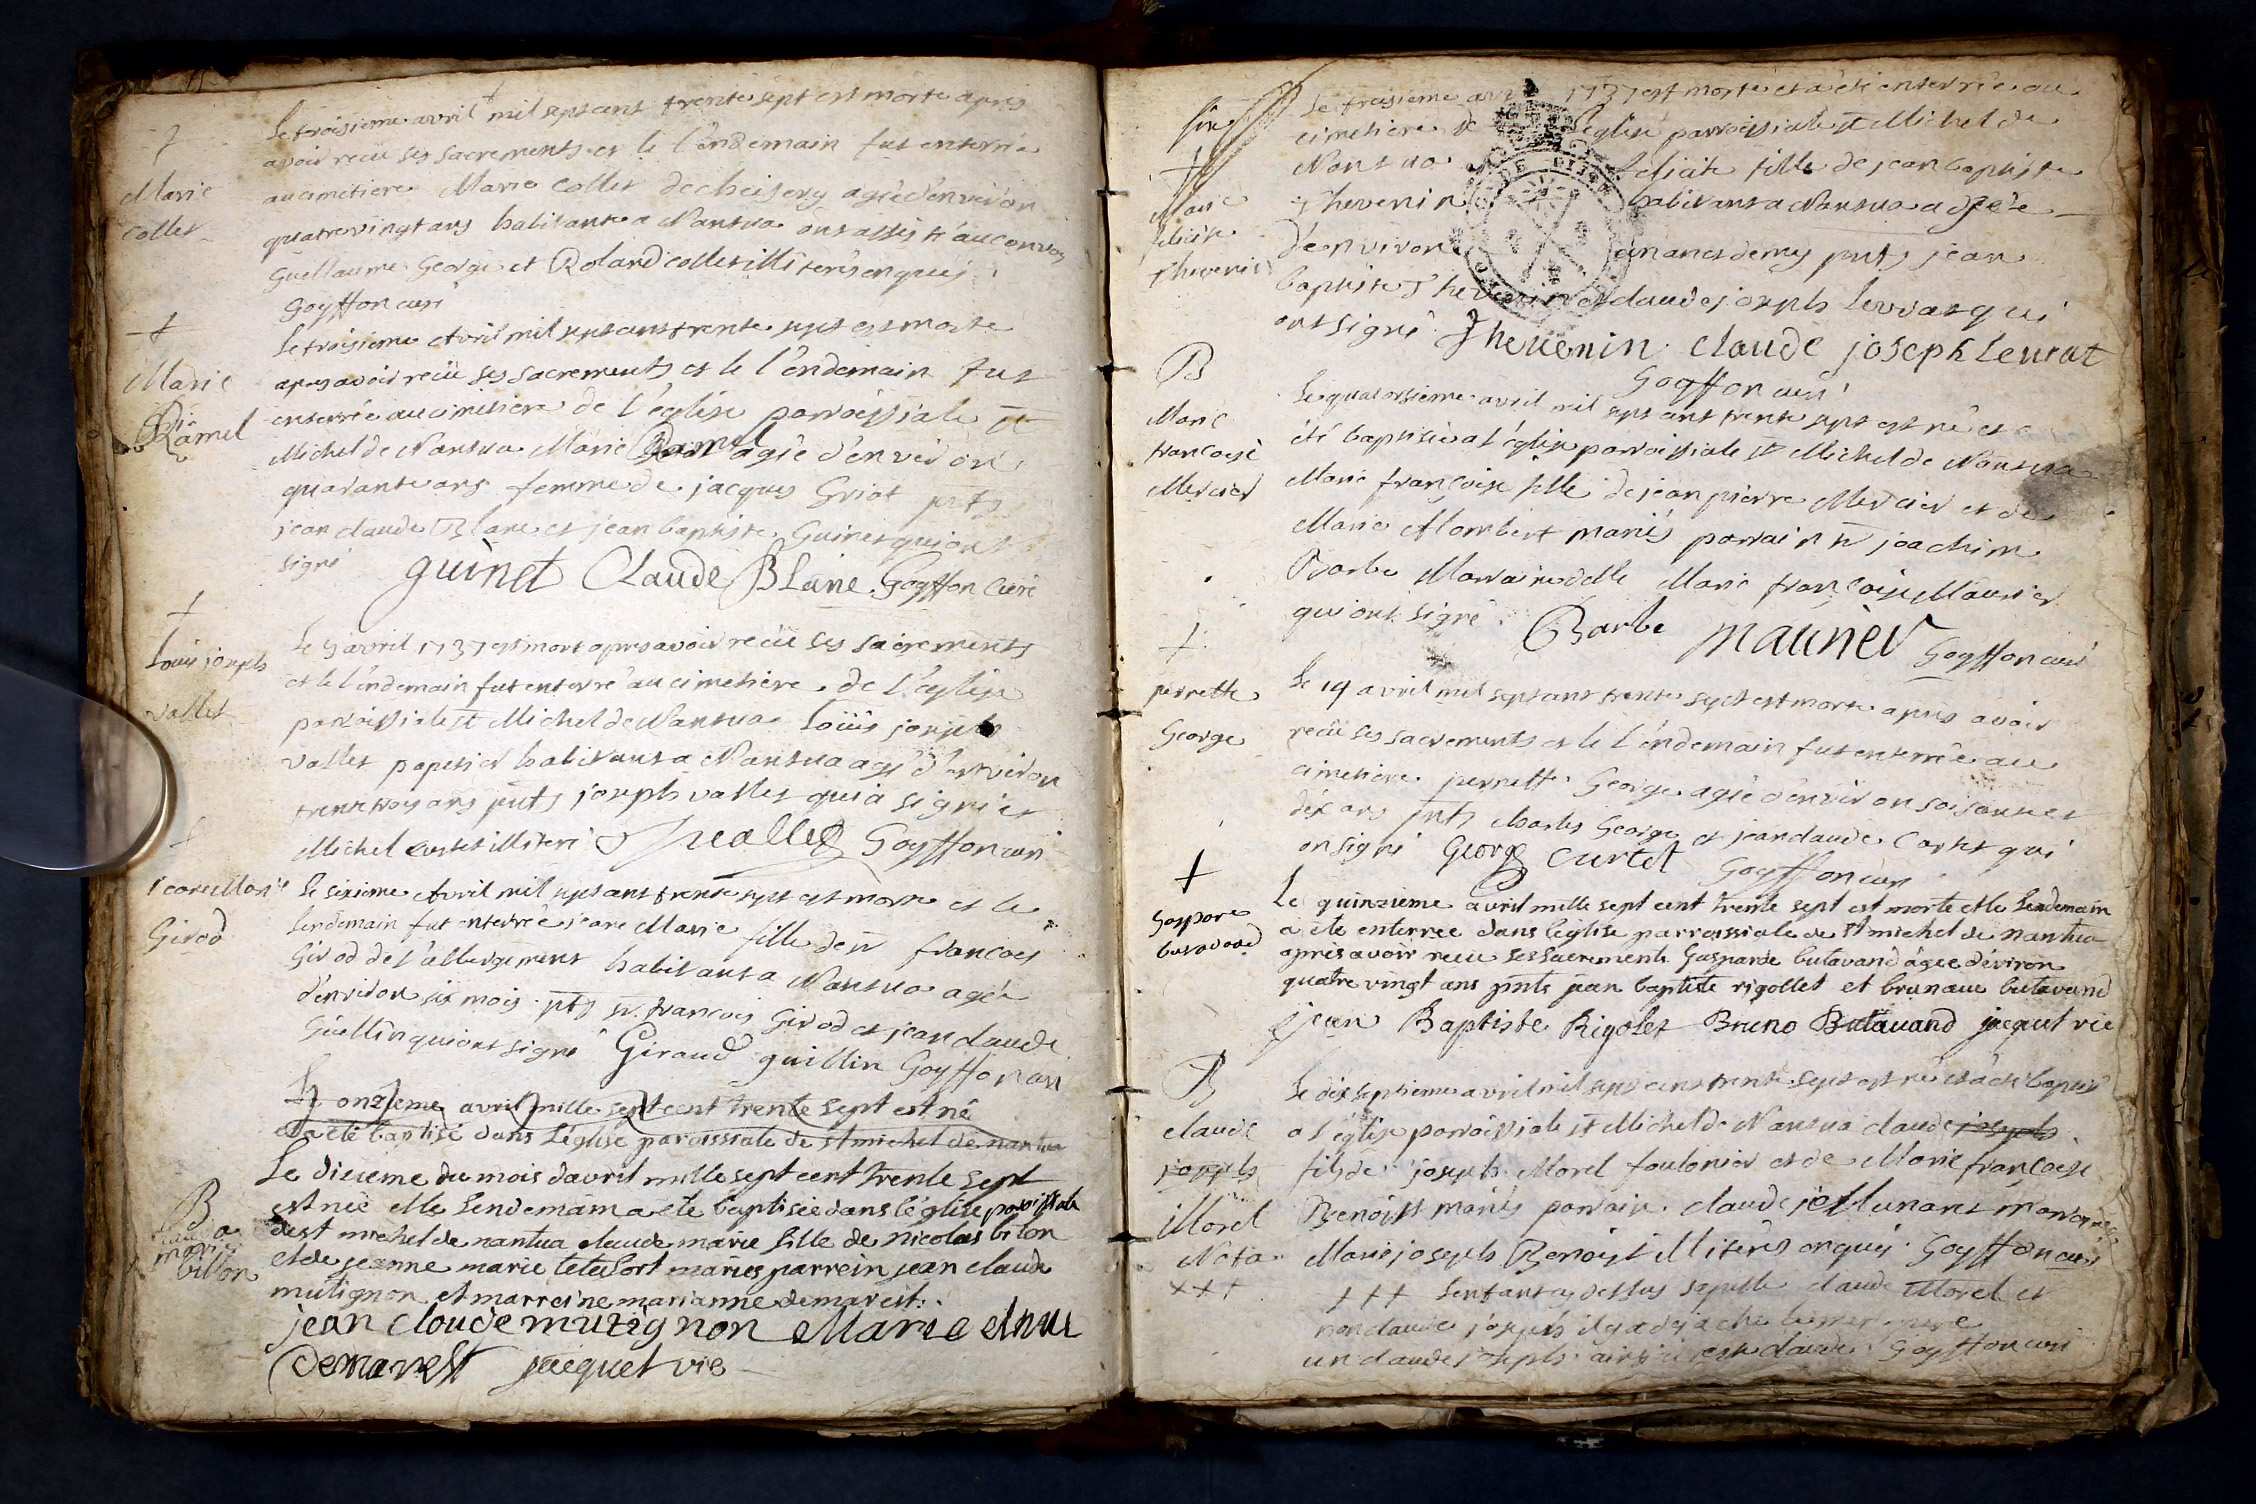 Le troisieme avril mil sept cent trente sept est morte apres
avoir reçu ses sacrements et le l'endemain fut enterrée
Marie
Collet
au cimetiere Marie Collet de cheisery agée d'environ
quatrevingt ans habitante a Nantua ont assisté au convoy
Guellaume George et Roland collet illiterés enquis
Goyffon curé
+
Marie
Ramel
Le troisieme Avril mil sept cent trente sept est morte
apres avoir reçu ses sacrements et le l'endemain fut
enterrée au cimetiere de l'église parroissiale st
Michel de Nantua Marie Ramel agée d'environ
quarante ans femme de jacques Griot pnts
jean claude Blane et jean baptiste Guinet qui ont
signé
guinet Claude Blane Goyffon Curé
+
Louis joseph
vallet
Le 5 avril 1737 est mort apres avoir reçu ses sacrements
et le l'endemain fut enterré au cimetiere de l'église
parroissiale st Michel de Nantua Loüis joseph
vallet papetier habitant a Nantua agé d'environ
trente troys ans pnts joseph vallet qui a signé et
Michel illiteré vallet Goyffon curé
+
Girod
Le sixieme Avril mil sept cent trente sept est morte et le
lendemain fut enterree jeane Marie fille de sr francoes
Girod de l'allbergement habitant a Nantua agée
d'environ six mois pnts sr. francois Girod et jean claude
Guellin qui ont signé Giraud guillin Goyffon curé
Le onzieme avril mille sept cent trente sept est né
et a été baptisé dans l'église paroissiale de st michel de nantua
B
claude
marie
billon
Le dicieme du mois d'avril mille sept cent trente sept
est née et le lendemain a ete baptisée dans l'église paroissiale
de st michel de nantua claude marie fille de nicolas bilon
et de jeanne marie maries parrein jean claude
mutignon et marreine marianne demarest
jean cloude mutignon Marie anne
demarest jacquet vic
+
Marie
felicite
Thevenin
Le troisieme avril 1737 est morte et a été enterrée au
cimetiere de l'eglise parroissiale st Michel de
Nantua felicite fille de jean baptiste
Thevenin habitant a Nantua agée
d'environ un an et demy pnts jean
baptiste Thevenin et claude joseph Levrat qui
ont signé Thevenin claude joseph Leurat
Goyffon curé
B
Marie
francoise
Mercier
Le quatorsieme avril mil sept cent trente sept est né et
été baptisée a l'église parroissiale st Michel de Nantua
Marie françoise fille de jean pierre Mercier et de
Marie Mombert mariés parrain sr joachim
Barbe Marraine delle Marie françoise Maunier
qui ont signé
Barbe Maunier Goyffon curé
+
perrette
George
Le 14 avril mil sept cent trente sept est morte apres avoir
reçu ses sacrements et le l'endemain fut enterrée au
cimetiere perrette George agée d'environ soisante et
dix ans pnts charles George et jean claude Curtet qui
on signé George curtet Goyffon curé
+
Gaspare
butavand
Le quinzieme avril mille sept cent trente sept est morte et le lendemain
a ete enterree dans l'église parroissiale de st michel de nantua
apres avoir recu ses sacrements Gasparde butavand agee d'éviron
quatre vingt ans pnts jean baptiste rigollet et brunaue butavand
jean Baptiste Rigolet Bruno Butavand jacquet vic
B
claude
joseph
Morel
Nota
+++
Le dix septieme avril mil sept cent trente sept est né et a été baptisé
a l'église parroissiale st Michel de Nantua claude joseph
fils de joseph Morel foulonier et de Marie françoise
Benoist mariés parrain claude marraine
Marie joseph Benoist illiterés enquis Goyffon curé
+++ Lenfant cy dessus sepelle claude Morel et
non claude joseph
un claude joseph Goyffon curé